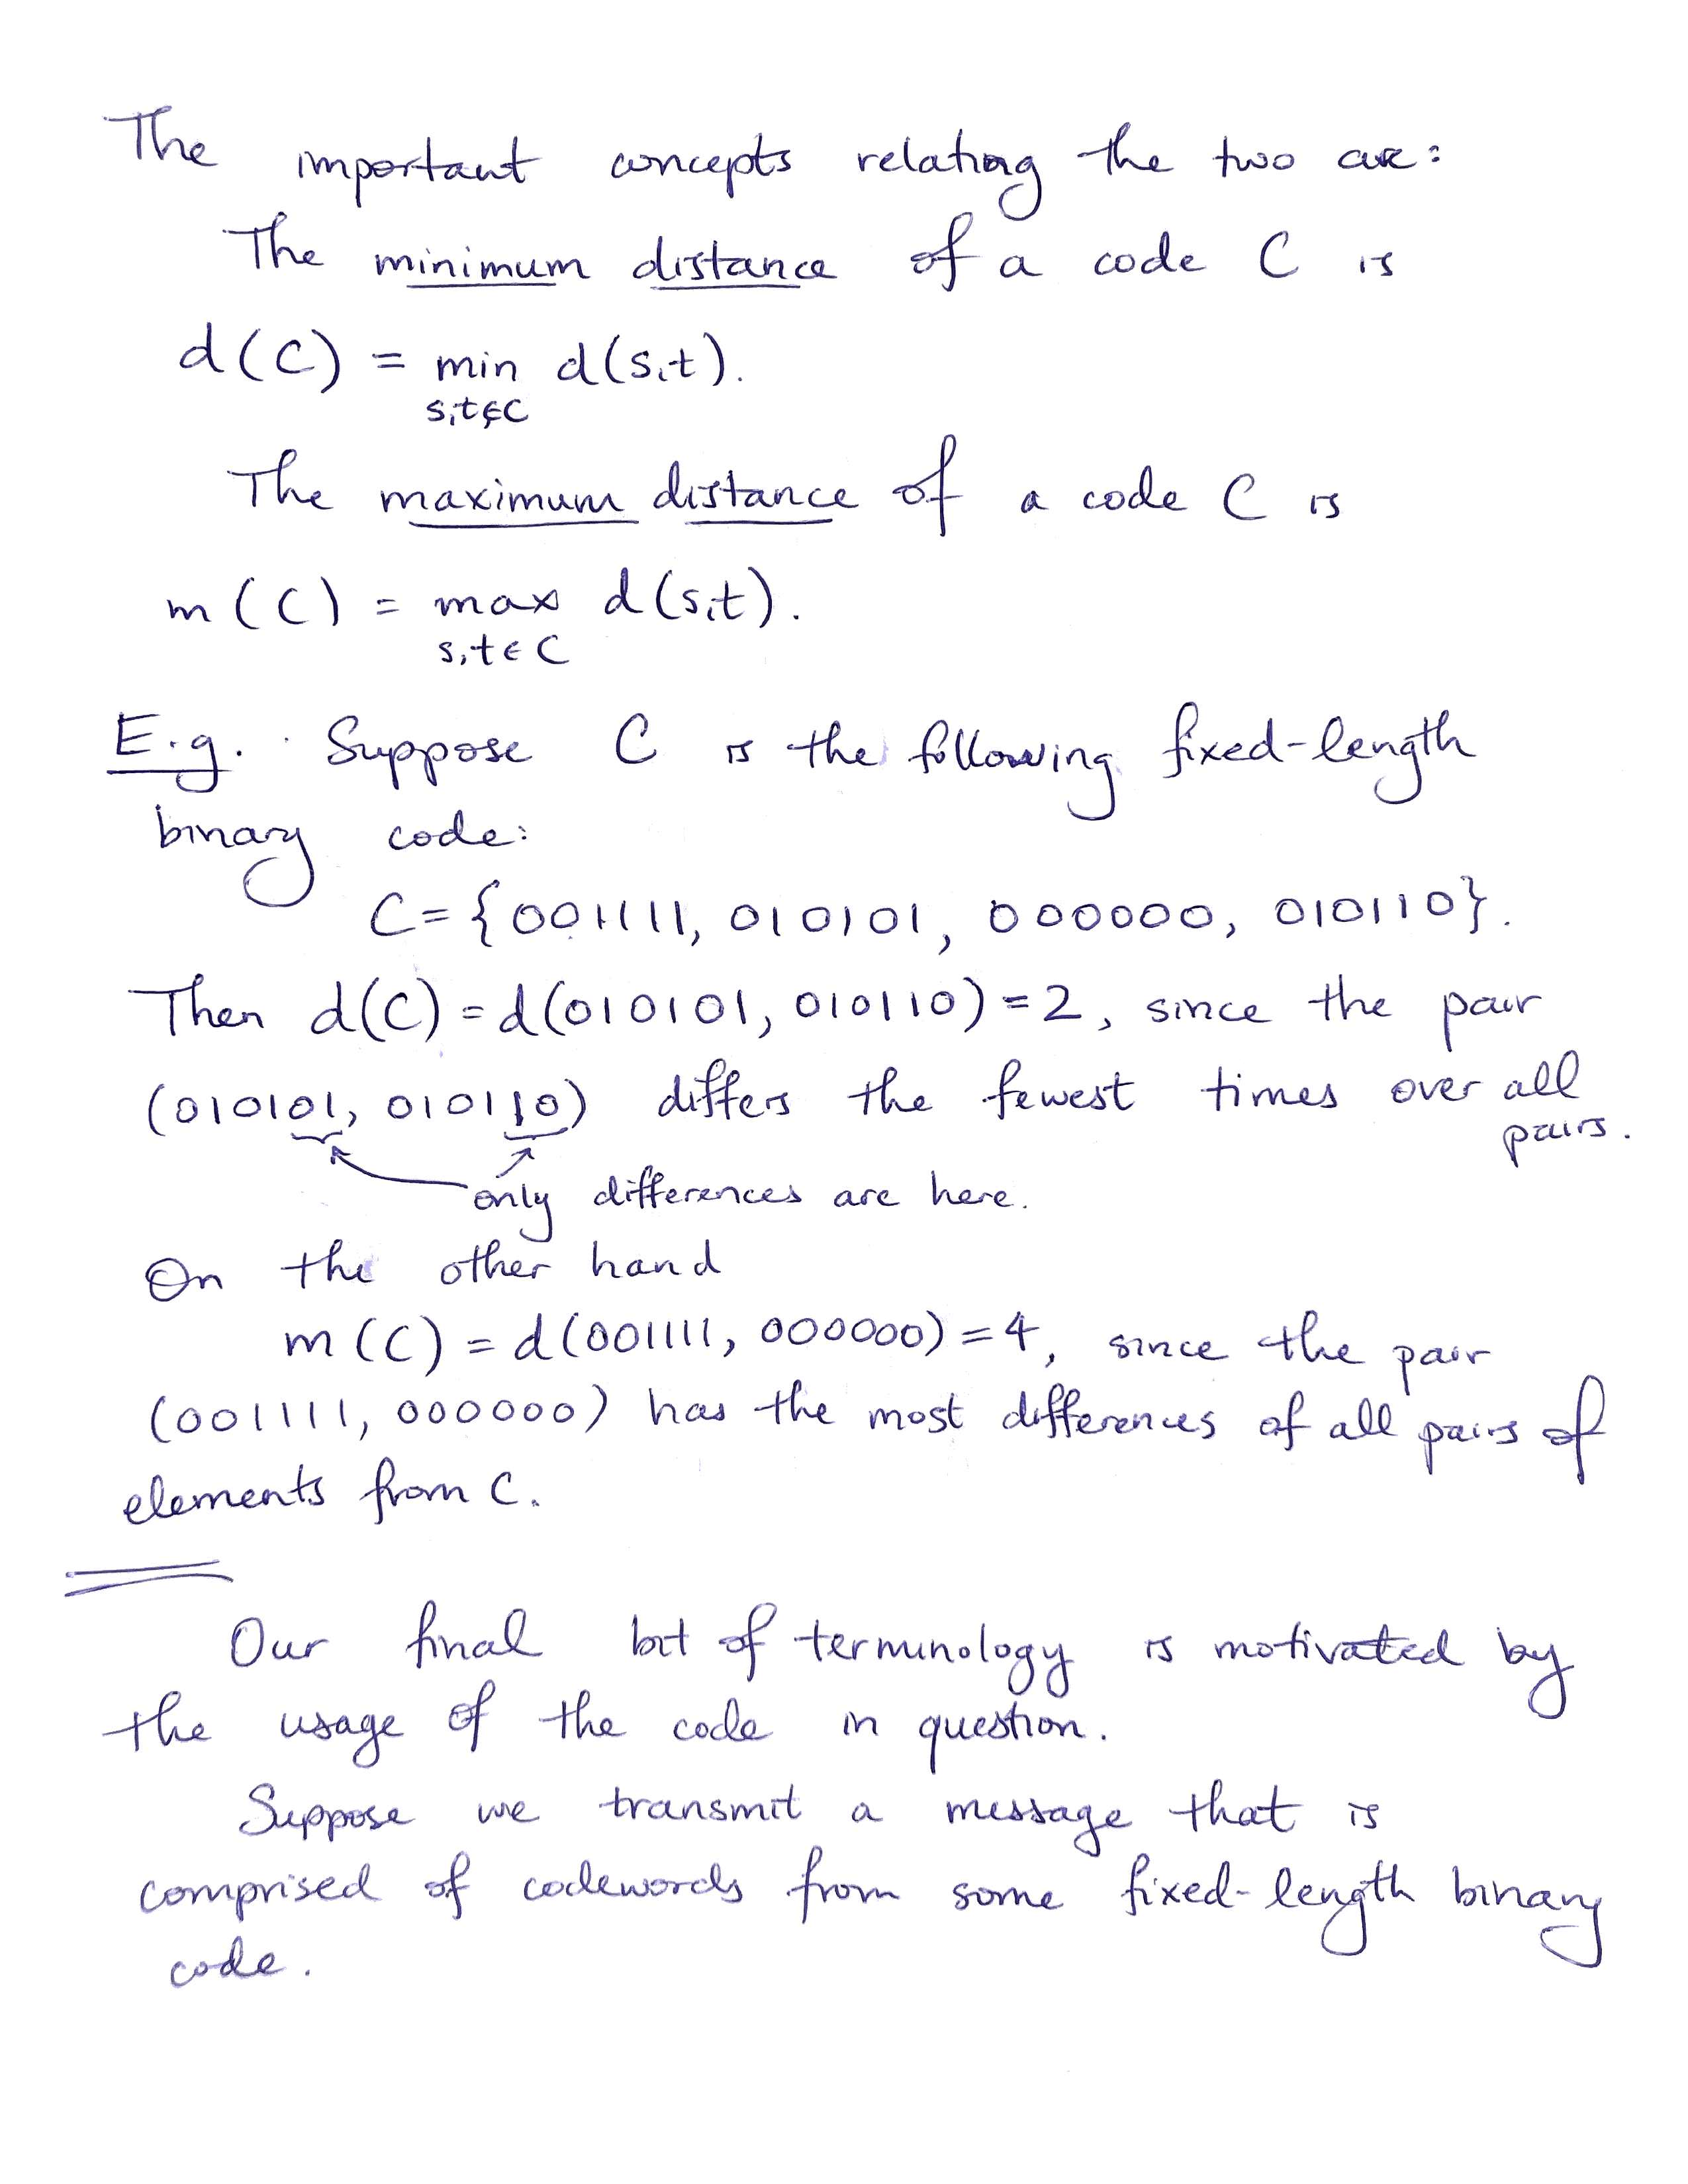 The important concepts relating the two are:
The minimum distance of a code C is
d(C) = min d(s,t).
s,t∈C
The maximum distance of a code C is
m(C) = max d(s,t).
s,t∈C
E.g. Suppose C is the following fixed-length
binary code:
C={001111, 010101, 000000, 010110}.
Then d(C) = d(010101, 010110) = 2, since the pair
(010101, 010110) differs the fewest times over all
pairs.
only differences are here.
On the other hand
m(C) = d(001111, 000000) = 4, since the pair
(001111, 000000) has the most differences of all pairs of
elements from C.
Our final bit of terminology is motivated by
the usage of the code in question.
Suppose we transmit a message that is
comprised of codewords from some fixed-length binary
code.